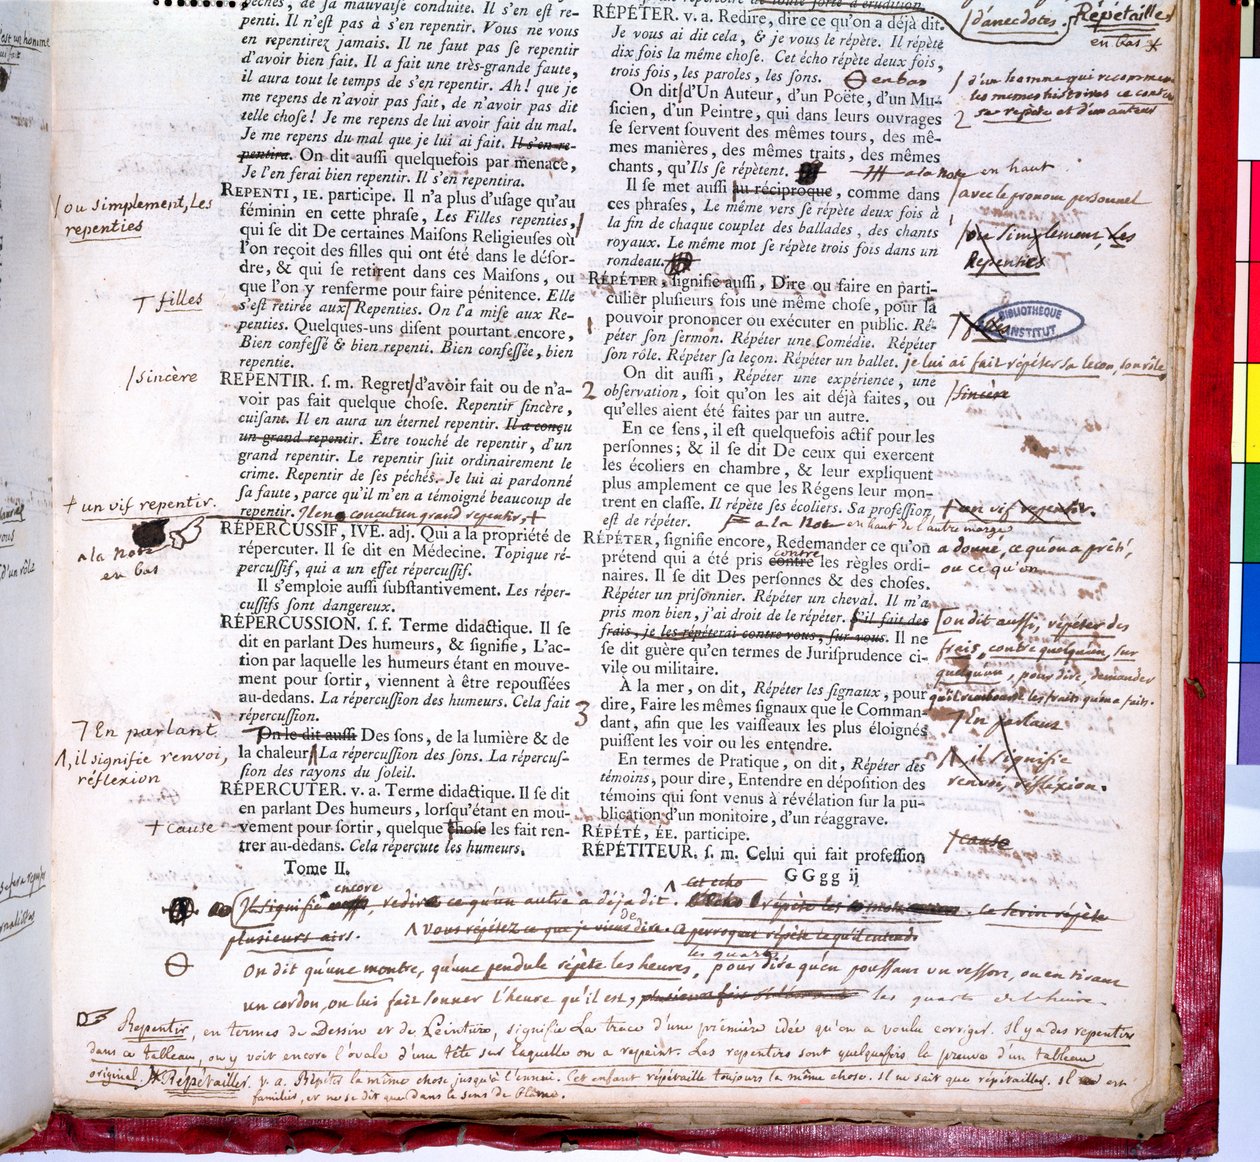 pêches, de sa mauvaise conduite. Il s'en est re-
penti. Il n'est pas à s'en repentir. Vous ne vous
en repentirez jamais. Il ne faut pas se repentir
d'avoir bien fait. Il a fait une très-grande faute,
il aura tout le temps de s'en repentir. Ah! que je
me repens de n'avoir pas fait, de n'avoir pas dit
telle chose! Je me repens de lui avoir fait du mal.
Je me repens du mal que je lui ai fait. Il s'en re-
pentira. On dit aussi quelquefois par menace,
Je l'en ferai bien repentir. Il s'en repentira.
REPENTI, IE. participe. Il n'a plus d'usage qu'au
féminin en cette phrase, Les Filles repenties,
qui se dit De certaines Maisons Religieuses où
l'on reçoit des filles qui ont été dans le désor-
dre, & qui se retirent dans ces Maisons, ou
que l'on y renferme pour faire pénitence. Elle
s'est retirée aux Repenties. On l'a mise aux Re-
penties. Quelques-uns disent pourtant encore,
Bien confessé & bien repenti. Bien confessée, bien
repentie.
REPENTIR. s. m. Regret d'avoir fait ou de n'a-
voir pas fait quelque chose. Repentir sincère,
cuisant. Il en aura un éternel repentir. Il a conçu
un grand repentir. Être touché de repentir, d'un
grand repentir. Le repentir suit ordinairement le
crime. Repentir de ses péchés. Je lui ai pardonné
sa faute, parce qu'il m'en a témoigné beaucoup de
repentir. Il en a conçu un grand repentir, +
RÉPERCUSSIF, IVE. adj. Qui a la propriété de
répercuter. Il se dit en Médecine. Topique ré-
percussif, qui a un effet répercussif.
Il s'emploie aussi substantivement. Les réper-
cussifs sont dangereux.
RÉPERCUSSION. s. f. Terme didactique. Il se
dit en parlant Des humeurs, & signifie, L'ac-
tion par laquelle les humeurs étant en mouve-
ment pour sortir, viennent à être repoussées
au-dedans. La répercussion des humeurs. Cela fait
répercussion.
On le dit aussi Des sons, de la lumière & de
la chaleur. La répercussion des sons. La répercus-
sion des rayons du soleil.
RÉPERCUTER. v. a. Terme didactique. Il se dit
en parlant Des humeurs, lorsqu'étant en mou-
vement pour sortir, quelque chose les fait ren-
trer au-dedans. Cela répercute les humeurs.
Tome II.
/ou simplement, Les
repenties
+ filles
/sincère
+ un vif repentir.
a la Note
en bas
7 En parlant
Λ, il signifie renvoi,
réflexion
+ cause
RÉPÉTER. v. a. Redire, dire ce qu'on a déjà dit.
Je vous ai dit cela, & je vous le répète. Il répète
dix fois la même chose. Cet écho répète deux fois,
trois fois, les paroles, les sons. en bas
On dit d'Un Auteur, d'un Poëte, d'un Mu-
sicien, d'un Peintre, qui dans leurs ouvrages
se servent souvent des mêmes tours, des mê-
mes manières, des mêmes traits, des mêmes
chants, qu'Ils se répètent. a la Note en haut
Il se met aussi au réciproque, comme dans
ces phrases, Le même vers se répète deux fois à
la fin de chaque couplet des ballades, des chants
royaux. Le même mot se répète trois fois dans un
rondeau.
RÉPÉTER, signifie aussi, Dire ou faire en parti-
culier plusieurs fois une même chose, pour la
pouvoir prononcer ou exécuter en public. Ré-
péter son sermon. Répéter une Comédie. Répéter
son rôle. Répéter sa leçon. Répéter un ballet. je lui ai fait répéter sa leçon, son rôle
On dit aussi, Répéter une expérience, une
2 observation, soit qu'on les ait déjà faites, ou
qu'elles aient été faites par un autre.
En ce sens, il est quelquefois actif pour les
personnes; & il se dit De ceux qui exercent
les écoliers en chambre, & leur expliquent
plus amplement ce que les Régens leur mon-
trent en classe. Il répète ses écoliers. Sa profession
est de répéter. a la Note en haut de l'autre marge
RÉPÉTER, signifie encore, Redemander ce qu'on
prétend qui a été pris contre les règles ordi-
naires. Il se dit Des personnes & des choses.
Répéter un prisonnier. Répéter un cheval. Il m'a
pris mon bien, j'ai droit de le répéter. S'il fait des
frais, je les répéterai contre vous, sur vous. Il ne
se dit guère qu'en termes de Jurisprudence ci-
vile ou militaire.
À la mer, on dit, Répéter les signaux, pour
3 dire, Faire les mêmes signaux que le Comman-
dant, afin que les vaisseaux les plus éloignés
puissent les voir ou les entendre.
En termes de Pratique, on dit, Répéter des
témoins, pour dire, Entendre en déposition des
témoins qui sont venus à révélation sur la pu-
blication d'un monitoire, d'un réaggrave.
RÉPÉTÉ, ÉE. participe.
RÉPÉTITEUR. s. m. Celui qui fait profession
GGgg ij
/d'anecdotes. Répétailler
en bas *
/ d'un homme qui recommence
les mêmes histoires
2 se répète et d'un auteur
/avec le pronom personnel
/ou simplement, Les
Repenties
BIBLIOTHEQUE
INSTITUT
/sincère
+ un vif repentir.
a donné, ce qu'on a prêté,
ou ce qu'on
[on dit aussi, répéter des
frais, contre quelqu'un, sur
quelqu'un, pour dire, demander
7 En parlant
Λ il signifie
renvoi, réflexion.
+ cause
Il signifie encore, redire ce qu'un autre a déjà dit. Cet écho répète les mots. Ce serin répète
plusieurs airs. Λ Vous répétez ce que je viens de dire. Ce perroquet répète ce qu'il entend.
On dit qu'une montre, qu'une pendule répète les heures, les quarts, pour dire qu'en poussant un ressort, ou en tirant
un cordon, on lui fait sonner l'heure qu'il est, les quarts de l'heure.
Repentir, en termes de Dessin et de Peinture, signifie La trace d'une première idée qu'on a voulu corriger. Il y a des repentirs
dans ce tableau, on y voit encore l'ovale d'une tête sur laquelle on a repeint. Les repentirs sont quelquefois la preuve d'un tableau
original. * Répétailler. v. a. Répéter la même chose jusqu'à l'ennui. Cet enfant répétaille toujours la même chose. Il ne sait que répétailler. Il est
familier, et ne se dit que dans le sens de blâme.